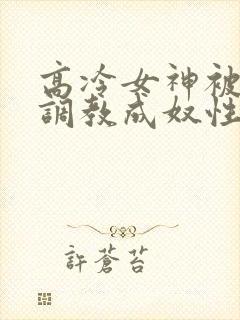 高冷女神被
調教成奴性
許蒼苔